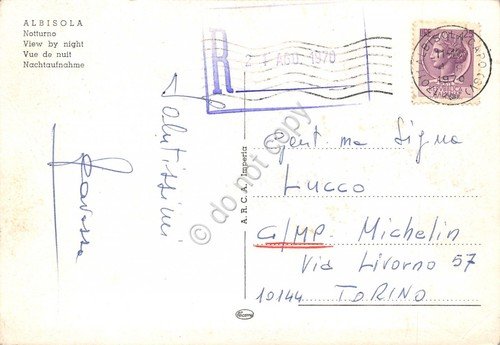 ALBISOLA
Notturno
View by night
Vue de nuit
Nachtaufnahme
R
AGO. 1970
Salutissimi
A.R.C.A. Imperia
do not copy
Gent.ma Sig.na
LUCCO
G/MP. Michelin
Via Livorno 57
10144 TORINO